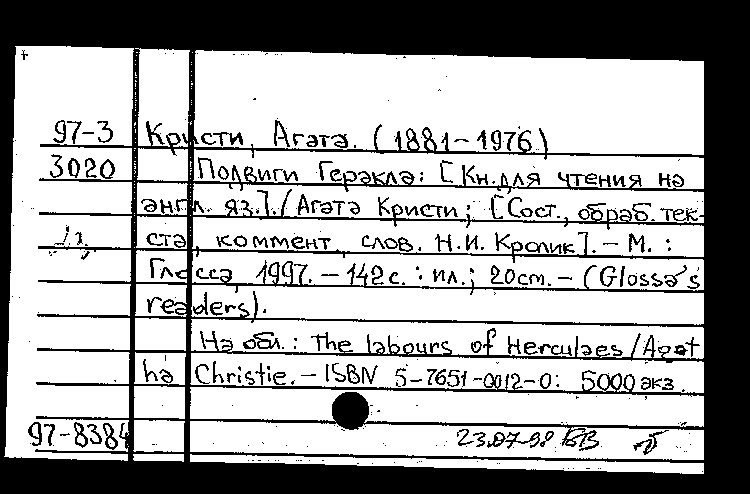 97-3 Кристи, Агата. (1881-1976)
3020 Подвиги Геракла: [Кн.для чтения на
англ. яз.]./Агата Кристи; [Сост., обраб. тек-
ста, коммент., слов. Н.И. Кролик]. - М. :
Глосса, 1997. - 142с. : ил.; 20см. - (Glossa's
readers).
На обл.: The labours of Herculaes/Agat
ha Christie. - ISBN 5-7651-0012-0: 5000экз.
97-8384 23.07-98 БВ